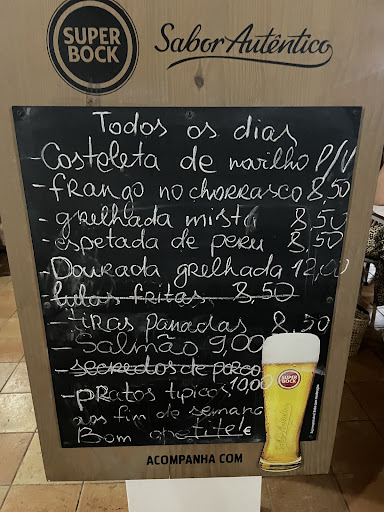 SUPER
BOCK
Sabor Autêntico
Todos os dias
- Costeleta de novilho P/V
- frango no chorrasco 8,50
- grelhada mista 8,50
- espetada de peru 8,50
- Dourada grelhada 12,00
- lulas fritas 8,50
- tiras panadas 8,50
- Salmão 9,00
- secretos de porco
- pratos tipicos 10,00
aos fin de semana
Bom apetite!
SUPER
BOCK
ACOMPANHA COM